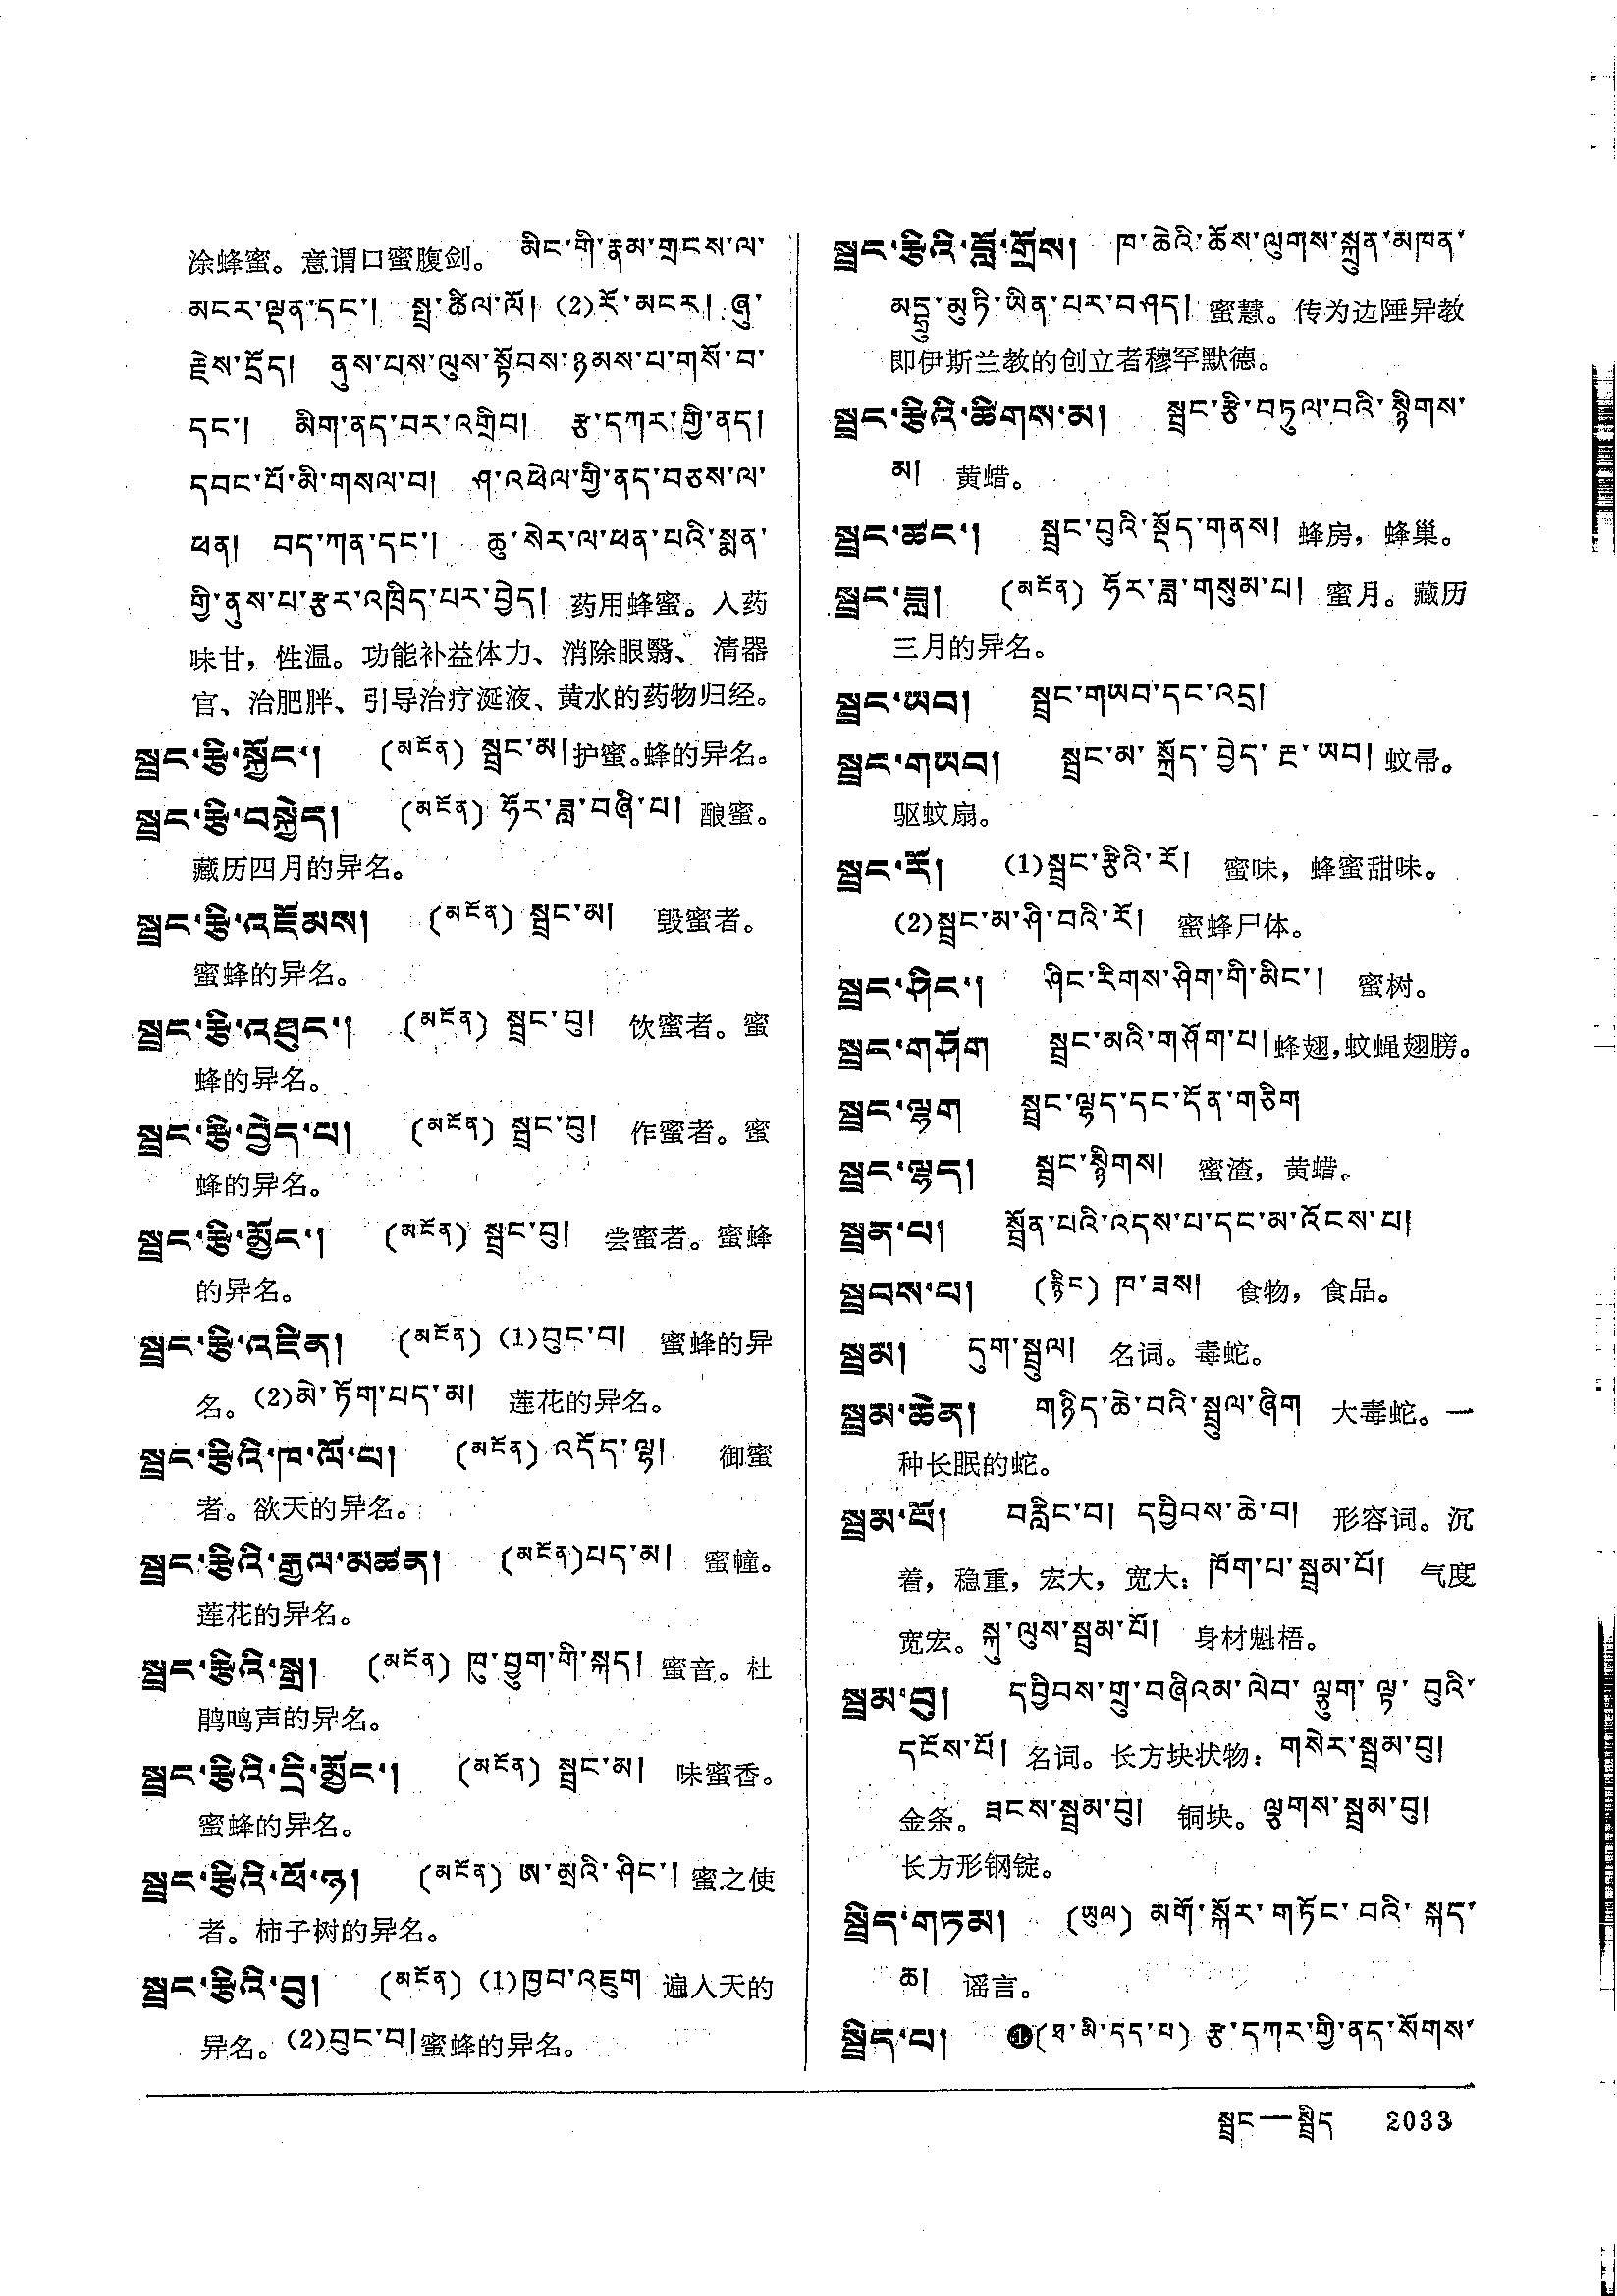 涂蜂蜜。意谓口蜜腹剑。 མིང་གི་རྣམ་གྲངས་ལ་
མངར་ལྡན་དང་། སྦྲ་ཚིལ་ལོ། (2)རོ་མངར། ཞུ་
རྗེས་དྲོད། ནུས་པས་ལུས་སྟོབས་ཉམས་པ་གསོ་བ་
དང་། མིག་ནད་བར་འགྲིབ། རྩ་དཀར་གྱི་ནད།
དབང་པོ་མི་གསལ་བ། ཤ་འཕེལ་གྱི་ནད་བཅས་ལ་
ཕན། བད་ཀན་དང་། ཆུ་སེར་ལ་ཕན་པའི་སྨན་
གྱི་ནུས་པ་རྩར་འཁྲིད་པར་བྱེད། 药用蜂蜜。入药
味甘，性温。功能补益体力、消除眼翳、清器
官、治肥胖、引导治疗涎液、黄水的药物归经。
སྦྲང་རྩི་སྐྱོང་། (མངོན) སྦྲང་མ། 护蜜。蜂的异名。
སྦྲང་རྩི་བསྐྱེད། (མངོན) ཧོར་ཟླ་བཞི་པ། 酿蜜。
藏历四月的异名。
སྦྲང་རྩི་འཇོམས། (མངོན) སྦྲང་མ། 毁蜜者。
蜜蜂的异名。
སྦྲང་རྩི་འཐུང་། (མངོན) སྦྲང་བུ། 饮蜜者。蜜
蜂的异名。
སྦྲང་རྩི་བྱེད་པ། (མངོན) སྦྲང་བུ། 作蜜者。蜜
蜂的异名。
སྦྲང་རྩི་མྱོང་། (མངོན) སྦྲང་བུ། 尝蜜者。蜜蜂
的异名。
སྦྲང་རྩི་འཛིན། (མངོན) (1)བུང་བ། 蜜蜂的异
名。(2)མེ་ཏོག་པད་མ། 莲花的异名。
སྦྲང་རྩིའི་ཁ་ལོ་པ། (མངོན) འདོད་ལྷ། 御蜜
者。欲天的异名。
སྦྲང་རྩིའི་རྒྱལ་མཚན། (མངོན)པད་མ། 蜜幢。
莲花的异名。
སྦྲང་རྩིའི་སྒྲ། (མངོན) ཁུ་བྱུག་གི་སྐད། 蜜音。杜
鹃鸣声的异名。
སྦྲང་རྩིའི་དྲི་མྱོང་། (མངོན) སྦྲང་མ། 味蜜香。
蜜蜂的异名。
སྦྲང་རྩིའི་ཕོ་ཉ། (མངོན) ཨ་མྲའི་ཤིང་། 蜜之使
者。柿子树的异名。
སྦྲང་རྩིའི་བུ། (མངོན) (1)ཁྱབ་འཇུག 遍入天的
异名。(2)བུང་བ། 蜜蜂的异名。
སྦྲང་རྩིའི་བློ་གྲོས། ཁ་ཆེའི་ཆོས་ལུགས་སྐྲུན་མཁན་
མདྷུ་མུཏི་ཡིན་པར་བཤད། 蜜慧。传为边陲异教
即伊斯兰教的创立者穆罕默德。
སྦྲང་རྩིའི་ཚིགས་མ། སྦྲང་རྩི་བཏུལ་བའི་སྙིགས་
མ། 黄蜡。
སྦྲང་ཚང་། སྦྲང་བུའི་སྡོད་གནས། 蜂房，蜂巢。
སྦྲང་ཟླ། (མངོན) ཧོར་ཟླ་གསུམ་པ། 蜜月。藏历
三月的异名。
སྦྲང་ཡབ། སྦྲང་གཡབ་དང་འདྲ།
སྦྲང་གཡབ། སྦྲང་མ་སྐྲོད་བྱེད་རྔ་ཡབ། 蚊帚。
驱蚊扇。
སྦྲང་རོ། (1)སྦྲང་རྩིའི་རོ། 蜜味，蜂蜜甜味。
(2)སྦྲང་མ་ཤི་བའི་རོ། 蜜蜂尸体。
སྦྲང་ཤིང་། ཤིང་རིགས་ཤིག་གི་མིང་། 蜜树。
སྦྲང་གཤོག སྦྲང་མའི་གཤོག་པ། 蜂翅，蚊蝇翅膀。
སྦྲང་ལྷག སྦྲང་ལྷད་དང་དོན་གཅིག
སྦྲང་ལྷད། སྦྲང་སྙིགས། 蜜渣，黄蜡。
སྦྲན་པ། སྦྲོན་པའི་འདས་པ་དང་མ་འོངས་པ།
སྦྲབས་པ། (རྙིང) ཁ་ཟས། 食物，食品。
སྦྲམ། དུག་སྦྲུལ། 名词。毒蛇。
སྦྲམ་ཆེན། གཉིད་ཆེ་བའི་སྦྲུལ་ཞིག 大毒蛇。一
种长眠的蛇。
སྦྲམ་པོ། བརླིང་བ། དབྱིབས་ཆེ་བ། 形容词。沉
着，稳重，宏大，宽大：ཁོག་པ་སྦྲམ་པོ། 气度
宽宏。སྐུ་ལུས་སྦྲམ་པོ། 身材魁梧。
སྦྲམ་བུ། དབྱིབས་གྲུ་བཞིའམ་ལེབ་ལྷུག་ལྟ་བུའི་
དངོས་པོ། 名词。长方块状物：གསེར་སྦྲམ་བུ།
金条。ཟངས་སྦྲམ་བུ། 铜块。ལྕགས་སྦྲམ་བུ།
长方形钢锭。
སྦྲིད་གཏམ། (ཡུལ) མགོ་སྐོར་གཏོང་བའི་སྐད་
ཆ། 谣言。
སྦྲིད་པ། ❶(ཐ་མི་དད་པ) རྩ་དཀར་གྱི་ནད་སོགས་
སྦྲང—སྦྲིད 2033